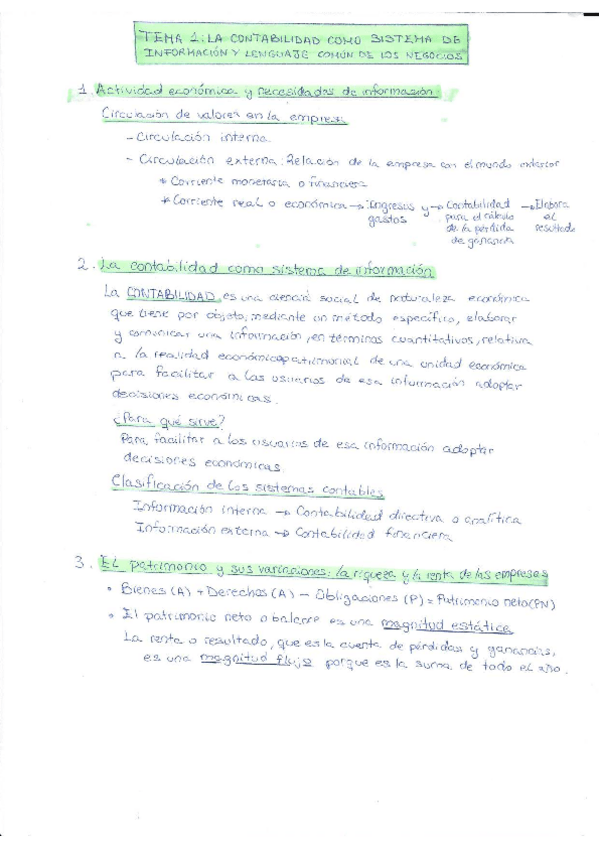 TEMA 1: LA CONTABILIDAD COMO SISTEMA DE
INFORMACIÓN Y LENGUAJE COMÚN DE LOS NEGOCIOS
1. Actividad económica y necesidades de información
Circulación de valores en la empresa
- Circulación interna
- Circulación externa: Relación de la empresa con el mundo exterior
* Corriente monetaria o financiera
* Corriente real o económica → Ingresos y gastos → Contabilidad para el cálculo de la pérdida de ganancia → Elabora el resultado
2. La contabilidad como sistema de información
La CONTABILIDAD es una ciencia social de naturaleza económica
que tiene por objeto, mediante un método específico, elaborar
y comunicar una información, en términos cuantitativos, relativa
a la realidad económicopatrimonial de una unidad económica
para facilitar a los usuarios de esa información adoptar
decisiones económicas.
¿Para qué sirve?
Para facilitar a los usuarios de esa información adoptar
decisiones económicas
Clasificación de los sistemas contables
Información interna → Contabilidad directiva o analítica
Información externa → Contabilidad financiera
3. El patrimonio y sus variaciones: la riqueza y la renta de las empresas
• Bienes (A) + Derechos (A) - Obligaciones (P) = Patrimonio neto (PN)
• El patrimonio neto o balance es una magnitud estática
La renta o resultado, que es la cuenta de pérdidas y ganancias,
es una magnitud flujo porque es la suma de todo el año.